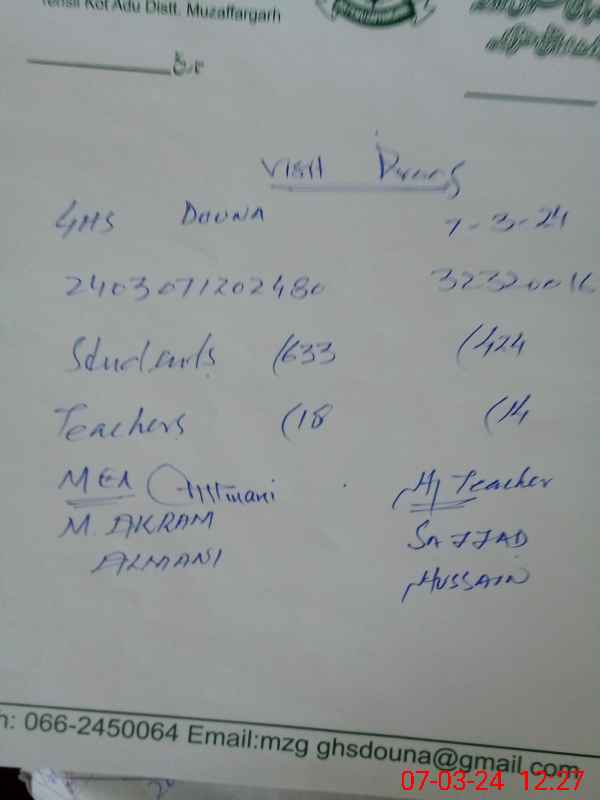 Tehsil Kot Adu Distt. Muzaffargarh
Visit Proof
GHS DOUNA 7-3-24
2403071202480 32320016
Students (633 (424
Teachers (18 (14
MEA H/Teacher
M. AKRAM SAJJAD
ALMANI HUSSAIN
h: 066-2450064 Email:mzg ghsdouna@gmail.com
07-03-24 12:27